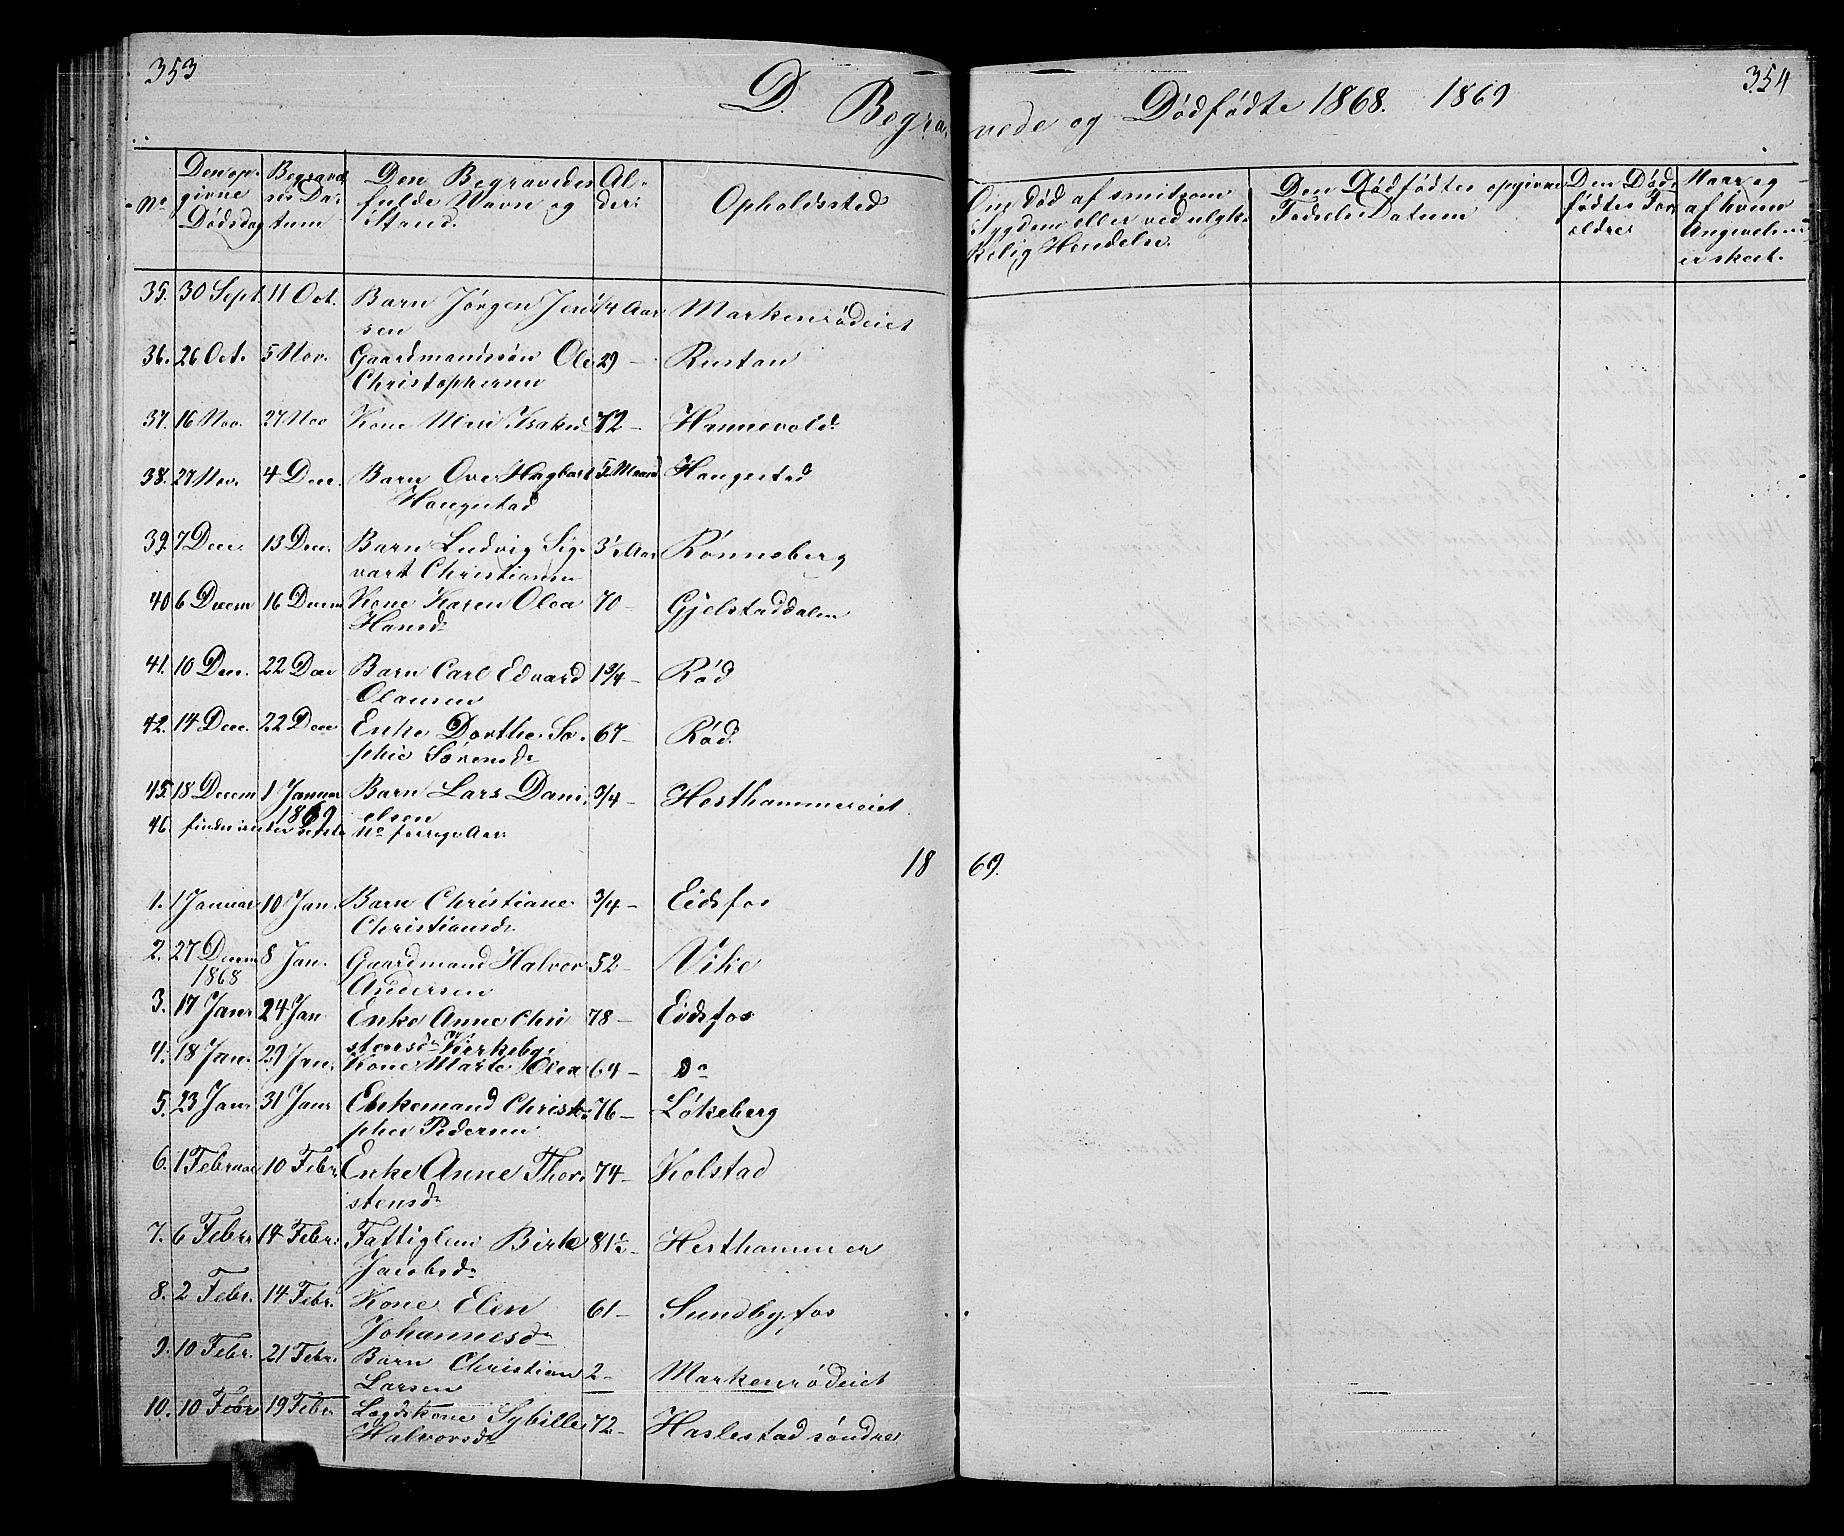 353
354
D. Begravede og Dødfødte 1868. 1869
No
Den opgivne Dødsdag
Begravelses Datum
Den Begravedes fulde Navn og Stand.
Alder
Opholdssted
Om Død af smitsom Sygdom eller ved ulykkelig Hendelse.
Den Dødfødtes opgivne Fødsels Datum
Den Dødfødtes Forældre
Naar og af hvem Angivelsen er skeet.
35. 30 Sept. 11 Oct. Barn Jørgen Jensen 1/4 Aar Markenrødeiet
36. 26 Oct. 5 Nov. Gaardmandssøn Ole Christophersen 29 – Rustan
37. 16 Nov. 27 Nov Kone 72 – Hannevold
38. 27 Nov. 4 Dec. Barn Ove Hagbart Haugestad 5 Haugestad
39. 7 Dec. 13 Dec. Barn Ludvig Sigvart Christiansen 3½ Aar Rønneberg
40 6 Decem 16 Decem Kone Karen Olea Hansd. 70 – Gjelstaddalen
41. 10 Dec. 22 Dec Barn Carl Edvard Olausen 1 3/4 – Rød
42. 14 Dec. 22 Dec Enke Dorthe Sophie Sørensd. 67 – Rød.
45. 18 Decem 1 Januar 1869 Barn Lars Danielsen 3/4 – Hesthammereiet
46. findes under sidste No forrige Aar
1869.
1. 1 Januar 10 Jan. Barn Christiane Christiansd. 3/4 – Eidsfos
2. 27 Decem 1868 8 Jan. Gaardmand Halvor Andersen 52 – Vike
3. 17 Janr 24 Jan Enke Anne Christensd. Kirkeby 78 – Eidsfos
4. 18 Jan. 29 Jan. Kone Marte Olea 64 – Do
5. 23 Janr 31 Janr Enkemand Christopher Pedersen 76 – Løkeberg
6. 1 Februar 10 Febr. Enke Anne Thorstensd. 74 – Kolstad
7. 6 Febr. 14 Febr. Fattiglem Birte Jacobsd. 81½ – Hesthammer
8. 2 Febr. 14 Febr. Kone Elen Johannesd. 61 – Sundbyfos
9. 10 Febr. 21 Febr. Barn Christian Larsen 2 – Markenrødeiet
10. 10 Febr 19 Febr. Lægdskone Sybille Halvorsd. 72 – Haslestad søndre